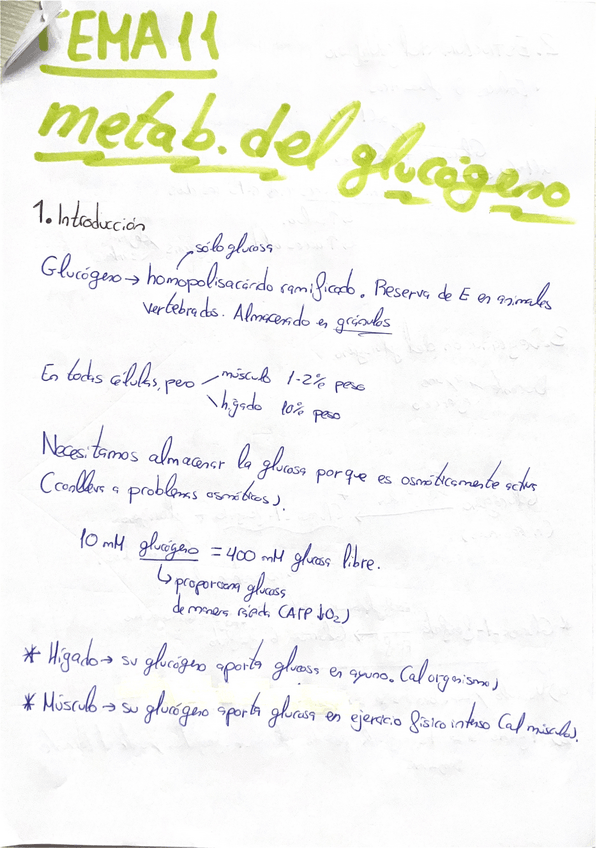 TEMA 11
metab. del glucógeno
1. Introducción
sólo glucosa
Glucógeno → homopolisacárido ramificado. Reserva de E en animales
vertebrados. Almacenado en gránulos
En todas células, pero músculo 1-2% peso
hígado 10% peso
Necesitamos almacenar la glucosa porque es osmóticamente activa
(conlleva a problemas osmóticos).
10 mM glucógeno = 400 mM glucosa libre.
↳ proporciona glucosa
de manera rápida (ATP ↓O₂)
* Hígado → su glucógeno aporta glucosa en ayuno. (al organismo)
* Músculo → su glucógeno aporta glucosa en ejercicio físico intenso (al músculo).